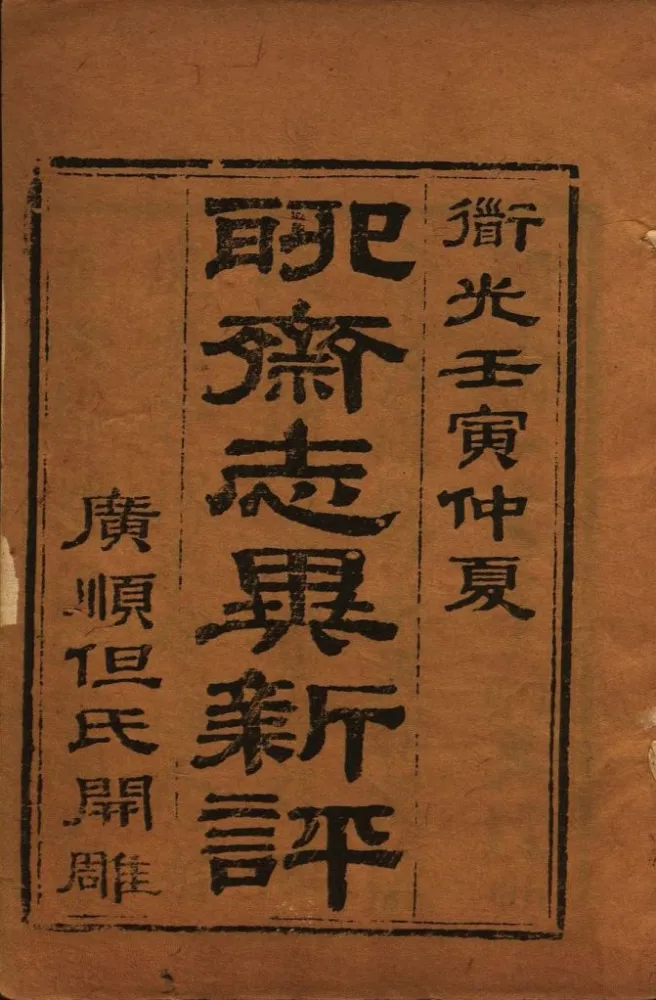 衟光壬寅仲夏
聊齋志異新評
廣順但氏開雕